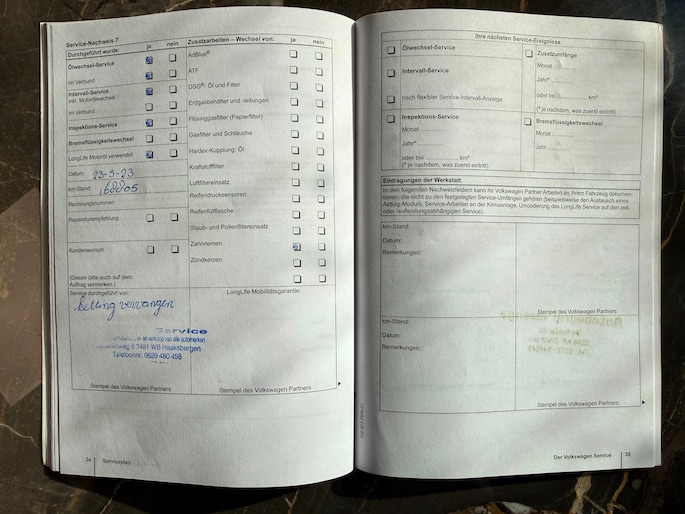 Service-Nachweis 7
Durchgeführt wurde: ja nein
Ölwechsel-Service
im Verbund
Intervall-Service
inkl. Motorölwechsel
im Verbund
Inspektions-Service
Bremsflüssigkeitswechsel
LongLife Motoröl verwendet
Datum: 23-5-23
km-Stand: 168805
Rechnungsnummer:
Reparaturempfehlung
Kundenwunsch
(Diesen bitte auch auf dem
Auftrag vermerken.)
Service durchgeführt von:
ketting vervangen
Service
en verkoop van alle automerken
weg 6 7481 WB Haaksbergen
Telefoonnr. 0629 460 458
Stempel des Volkswagen Partners
Zusatzarbeiten – Wechsel von: ja nein
AdBlue®
ATF
DSG®: Öl und Filter
Erdgasbehälter und -leitungen
Flüssiggasfilter (Papierfilter)
Gasfilter und Schläuche
Haldex-Kupplung: Öl
Kraftstofffilter
Luftfiltereinsatz
Reifendrucksensoren
Reifenfüllflasche
Staub- und Pollenfiltereinsatz
Zahnriemen
Zündkerzen
LongLife Mobilitätsgarantie:
Stempel des Volkswagen Partners
34 Serviceplan
Ihre nächsten Service-Ereignisse
Ölwechsel-Service
Intervall-Service
nach flexibler Service-Intervall-Anzeige
Inspektions-Service
Monat
Jahr*
oder bei km*
(* je nachdem, was zuerst eintritt)
Zusatzumfänge
Monat
Jahr*
oder bei km*
(* je nachdem, was zuerst eintritt)
Bremsflüssigkeitswechsel
Monat
Jahr
Eintragungen der Werkstatt
In den folgenden Nachweisfeldern kann Ihr Volkswagen Partner Arbeiten an Ihrem Fahrzeug dokumen-
tieren, die nicht zu den festgelegten Service-Umfängen gehören (beispielsweise den Austausch eines
Airbag-Moduls, Service-Arbeiten an der Klimaanlage, Umcodierung des LongLife Service auf den zeit-
oder laufleistungsabhängigen Service).
km-Stand:
Datum:
Bemerkungen:
Stempel des Volkswagen Partners
km-Stand:
Datum:
Bemerkungen:
Stempel des Volkswagen Partners
Der Volkswagen Service 35